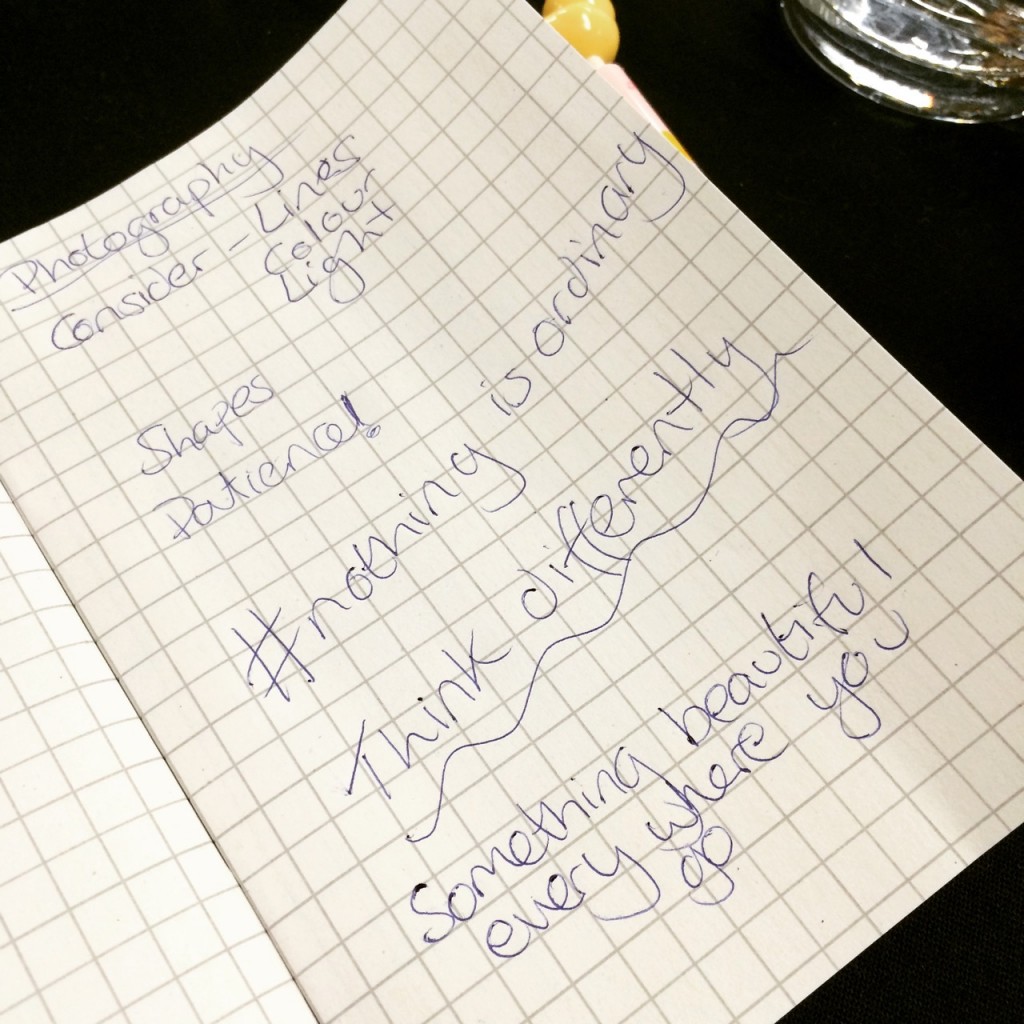 Photography
Consider - Lines
Colour
Light
Shapes
Patience!
#nothing is ordinary
Think differently
Something beautiful
every where you
go